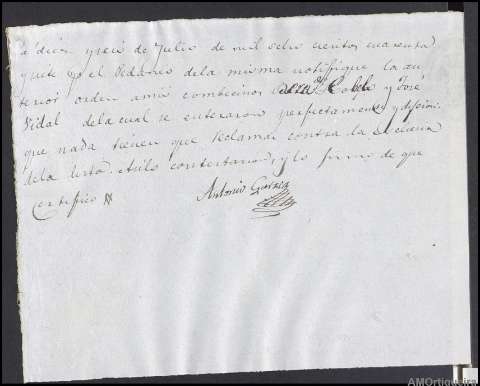 a dies y seis de Julio de mil ocho cientos cuarenta
y siete yo el Pedaneo de la misma notifique la an
terior orden a mis combecinos y José
Vidal de la cual se enteraron perfectamente y
que nada tienen que Reclamar contra la
de la lista. Asi lo contestaron, y lo firmo de que
certifico
Antonio
AMOrtigueira